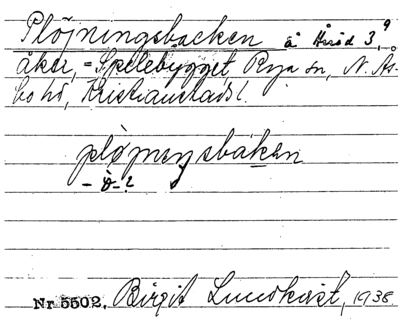 Plöjningsbacken å Åsröd 3,⁹
åker, = Spelebygget Rya sn, N. Ås-
bo hd, Kristianstads l.
plo̤jnensbákan
– ö̀ – ?
Nr 5502. Birgit Lundkvist, 1938